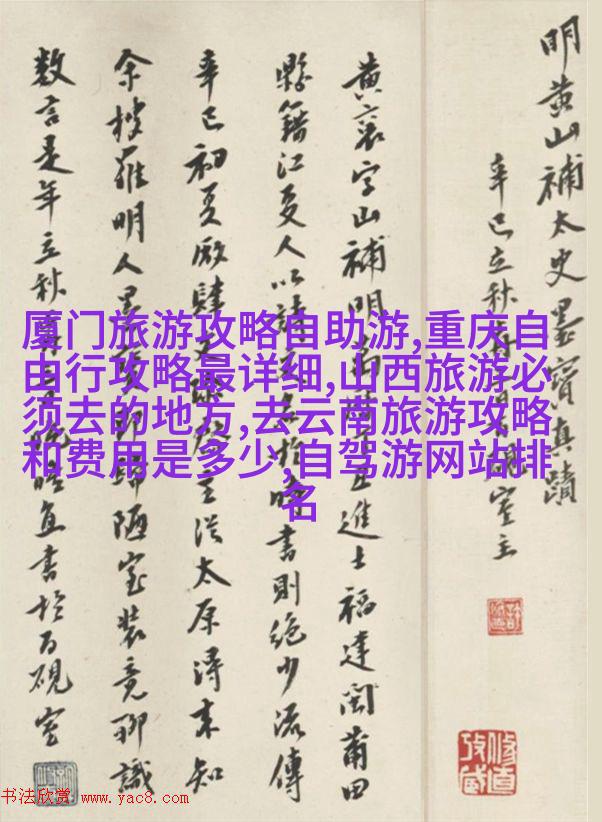 明黄山補太史墨寶真蹟
辛巳立秋室主
黄襄字山補明進士福建閩莆田
縣籍江夏人以詩名於時書則絶少流傳
辛巳初夏厰肆主從太原得来知
余搜羅明人墨蹟即歸陋室装竟聊識
数言是年立秋宜書於百硯室
厦门旅游攻略自助游,重庆自
由行攻略最详细,山西旅游必
须去的地方,去云南旅游攻略
和费用是多少,自驾游网站排
名
书法欣赏 www.yac8.com